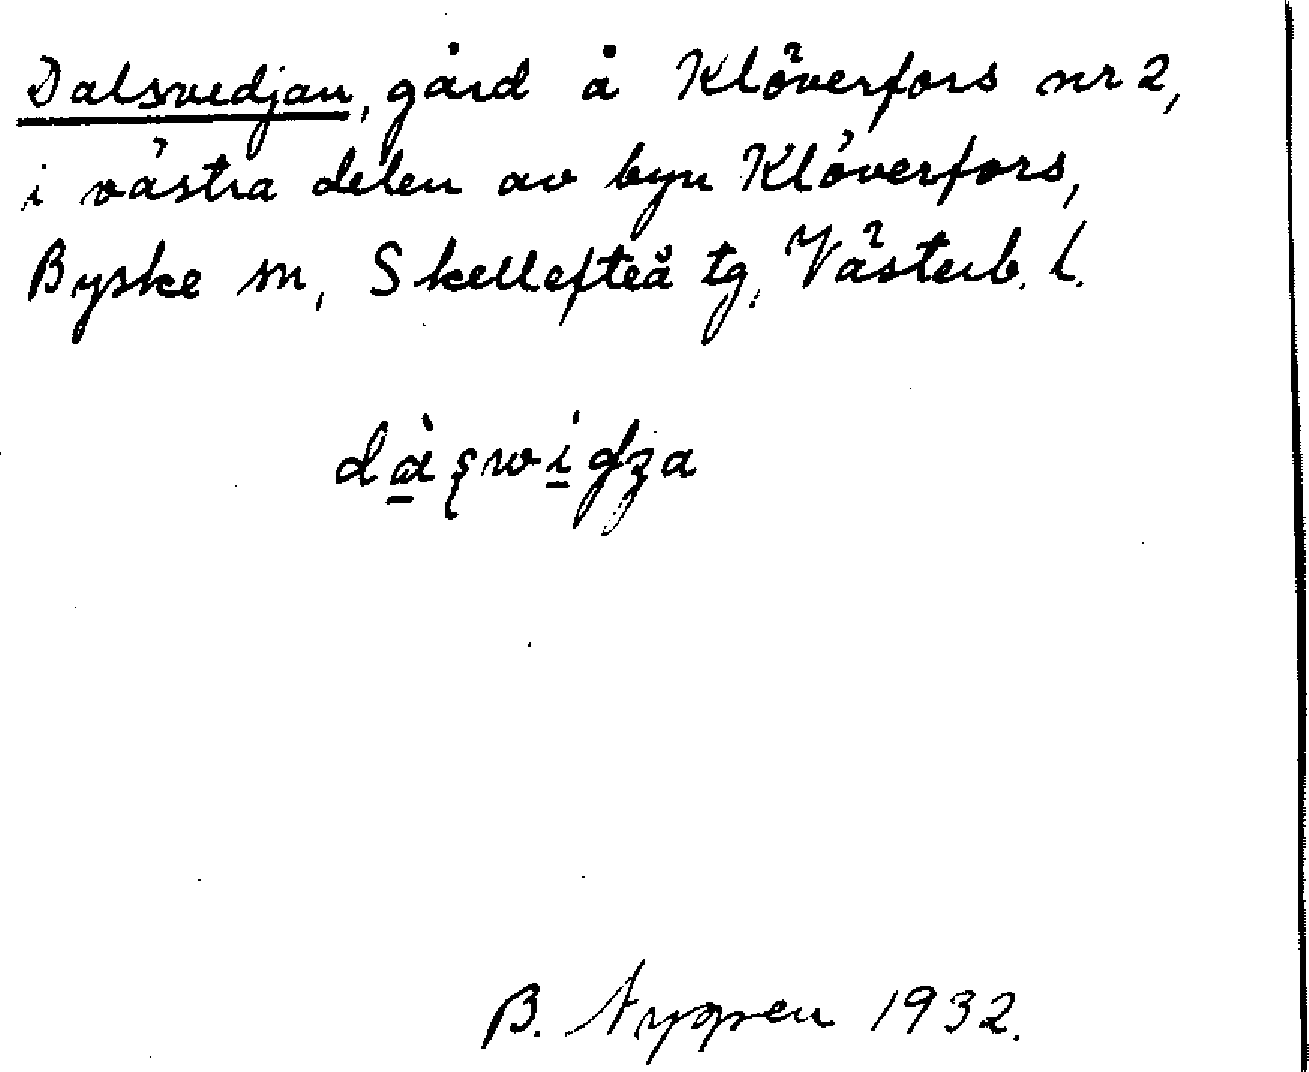 Dalsvedjan, gård å Klöverfors nr 2,
i västra delen av byn Klöverfors,
Byske sn, Skellefteå tg, Västerb. l.
B. Nygren 1932.